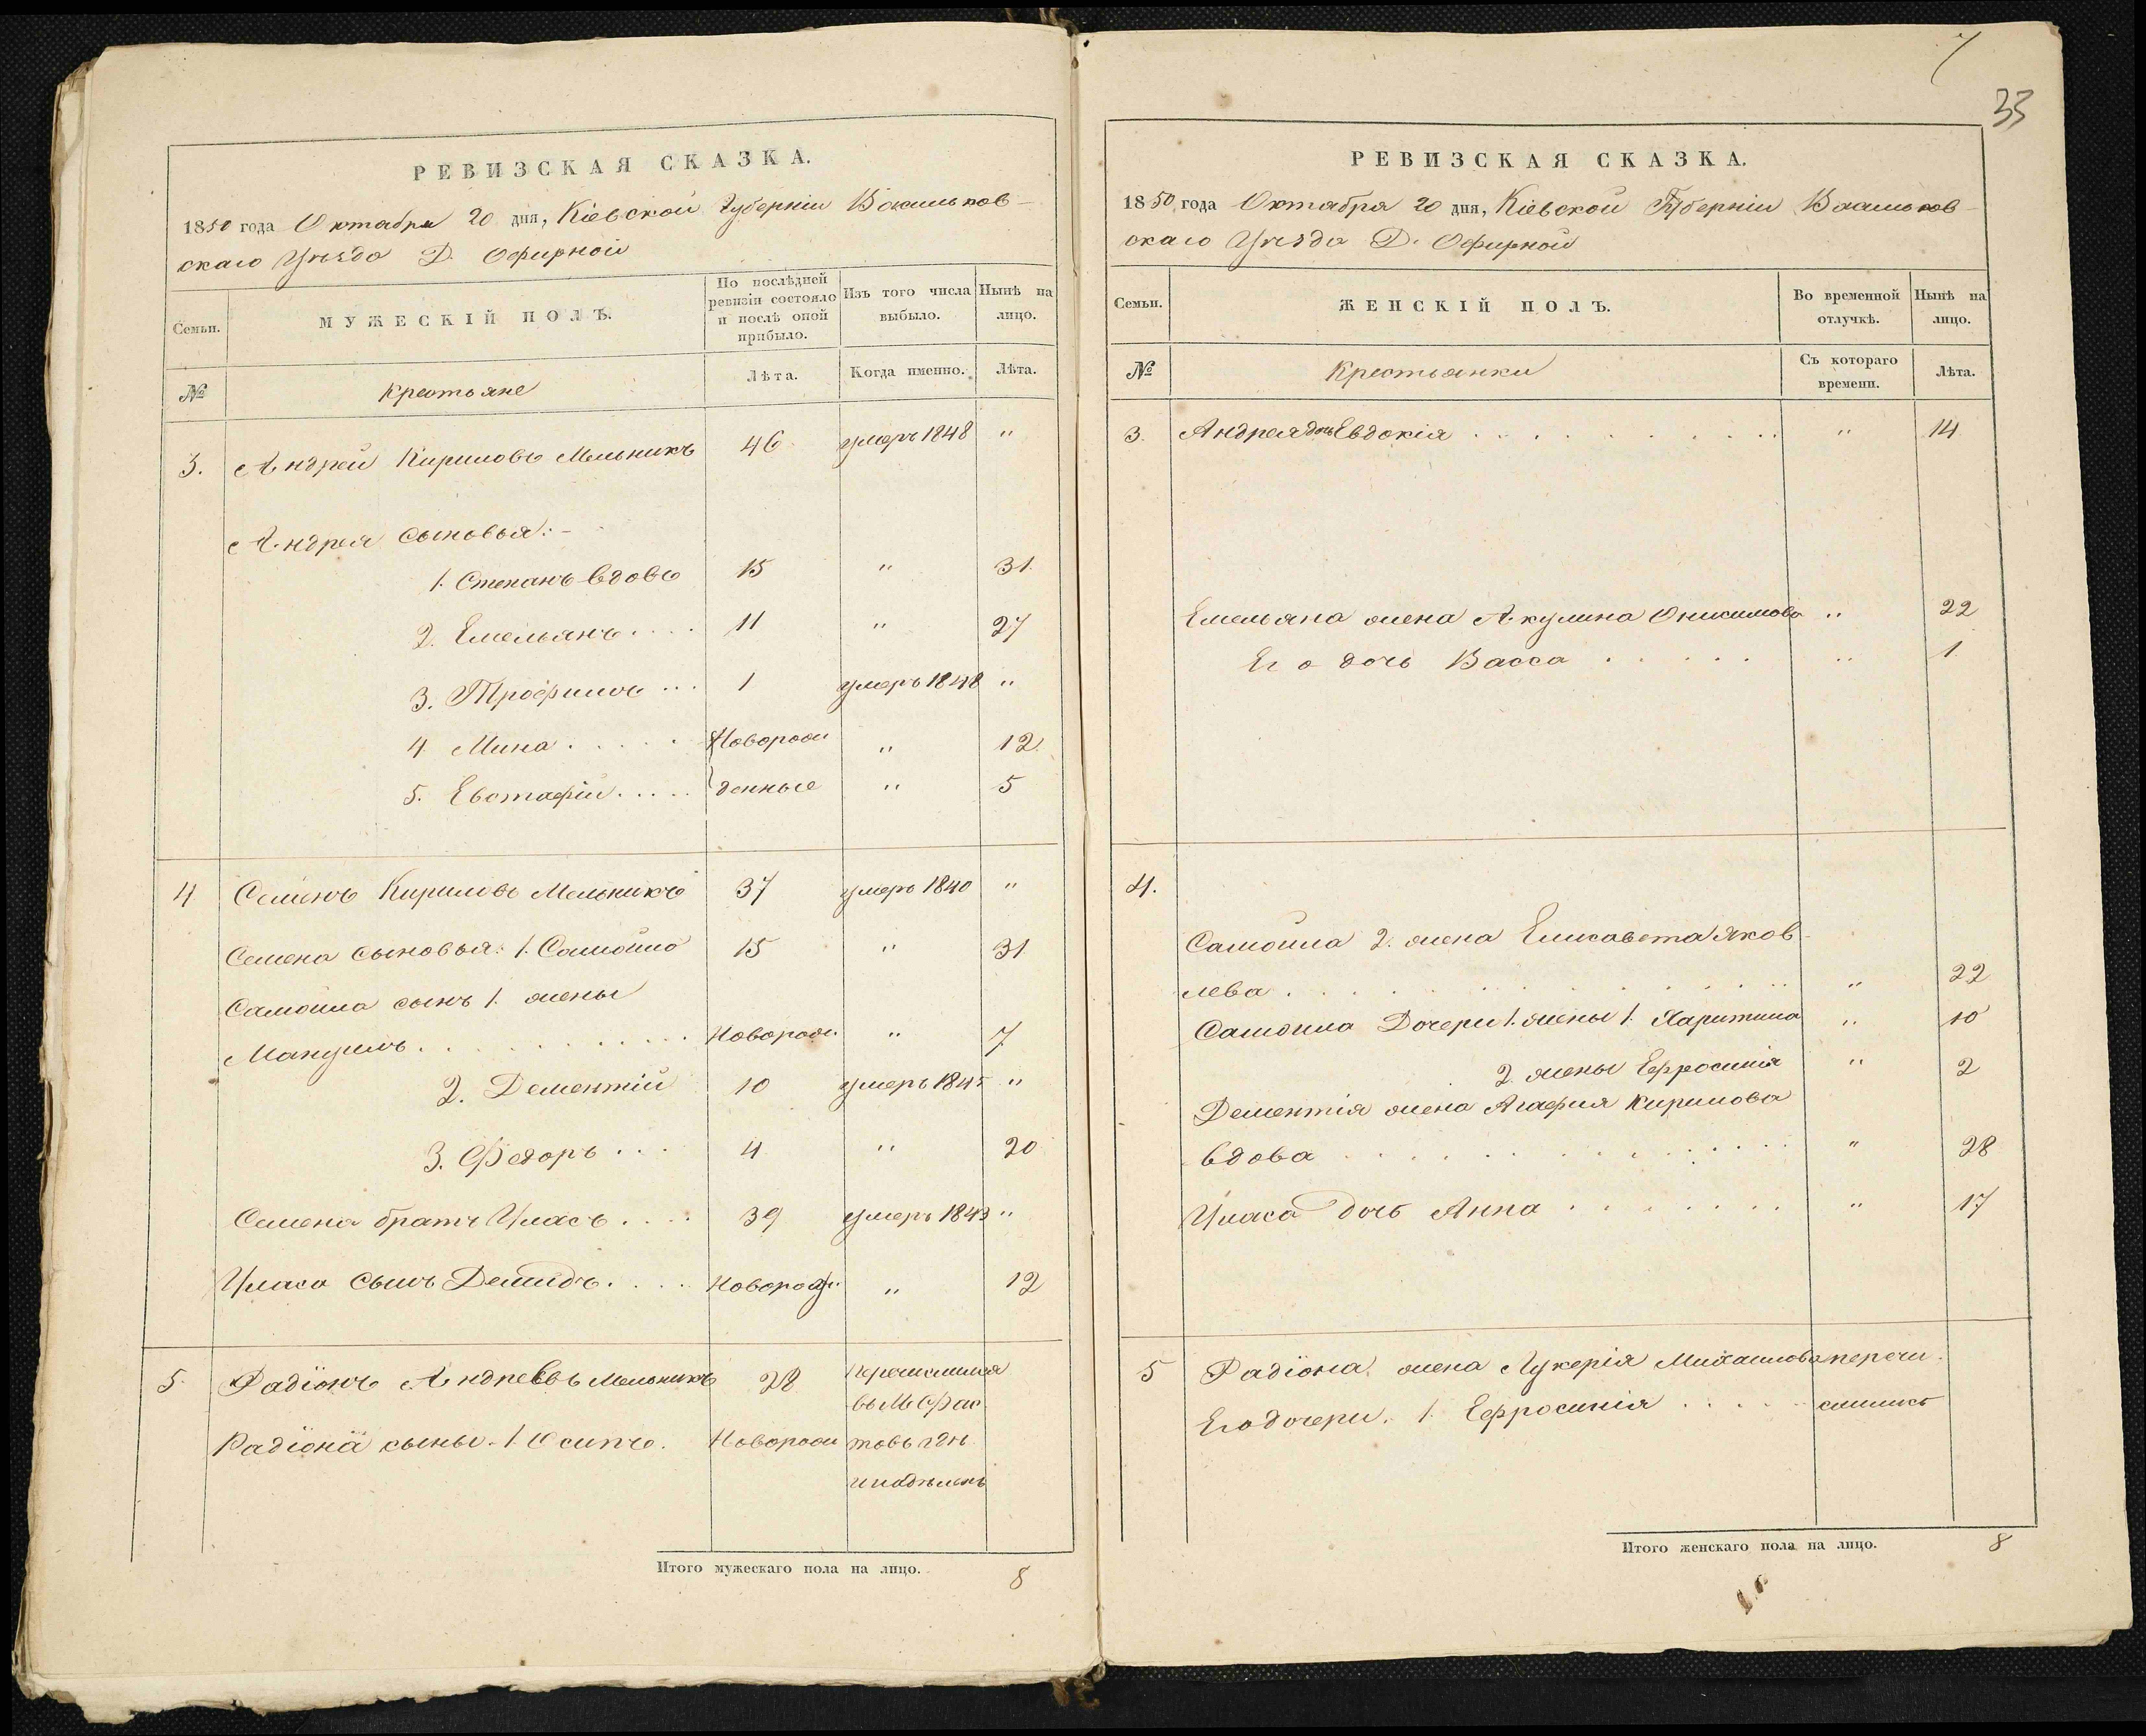 РЕВИЗСКАЯ СКАЗКА.
1850 года Октября 20 дня, Кіевской Губерніи Васильков-
скаго Уѣзда Д. Офирной
Семьи. МУЖЕСКІЙ ПОЛЪ. По послѣдней ревизіи состояло и послѣ оной прибыло. Изъ того числа выбыло. Нынѣ на лицо.
№ Крестьяне Лѣта. Когда именно. Лѣта.
3. Андрей Кириловъ Мельникъ 46 умеръ 1848 "
Андрея сыновья:-
1. Степанъ вдовъ 15 " 31
2. Емельянъ.... 11 " 27
3. Трофимъ... 1 умеръ 1848 "
4 Мина..... Новорож " 12.
5. Евстафій..... денные " 5
4 Семенъ Кириловъ Мельникъ 37 умеръ 1840 "
Семена сыновья: 1. Самойло 15 " 31
Самойла сынъ 1. жены
Мануилъ............ Новорож. " 7
2. Дементій 10 умеръ 1845 "
3. Федоръ.... 4 " 20
Семена братъ Уласъ.... 39 умеръ 1843 "
Уласа сынъ Демидъ.... Новорож. " 12
5. Радіонъ Андреевъ Мельникъ 28 перечислился
въ М Фас
Радіона сыны. 1. Осипъ. Новорож товъ гдѣ
и
Итого мужескаго пола на лицо. 8
33
РЕВИЗСКАЯ СКАЗКА.
1850 года Октября 20 дня, Кіевской Губерніи Васильков-
скаго Уѣзда Д. Офирной
Семьи. ЖЕНСКІЙ ПОЛЪ. Во временной отлучкѣ. Нынѣ на лицо.
№ Крестьянки Съ котораго времени. Лѣта.
3. Андрея дочь Евдокія............ " 14
Емельяна жена Акулина Онисимова " 22
Его дочь Васса..... " 1
4.
Самойла 2. жена Елисавета Яков-
лева............ " 22
Самойла Дочери 1. жены 1. Харитина " 10
2. жены Ефросинія " 2
Дементія жена Агафія Кирилова
вдова............ " 28
Уласа дочь Анна....... " 17
5 Радіона жена Лукерія Михаилова перечи.
Его дочери. 1. Ефросинія..... слились
Итого женскаго пола на лицо. 8